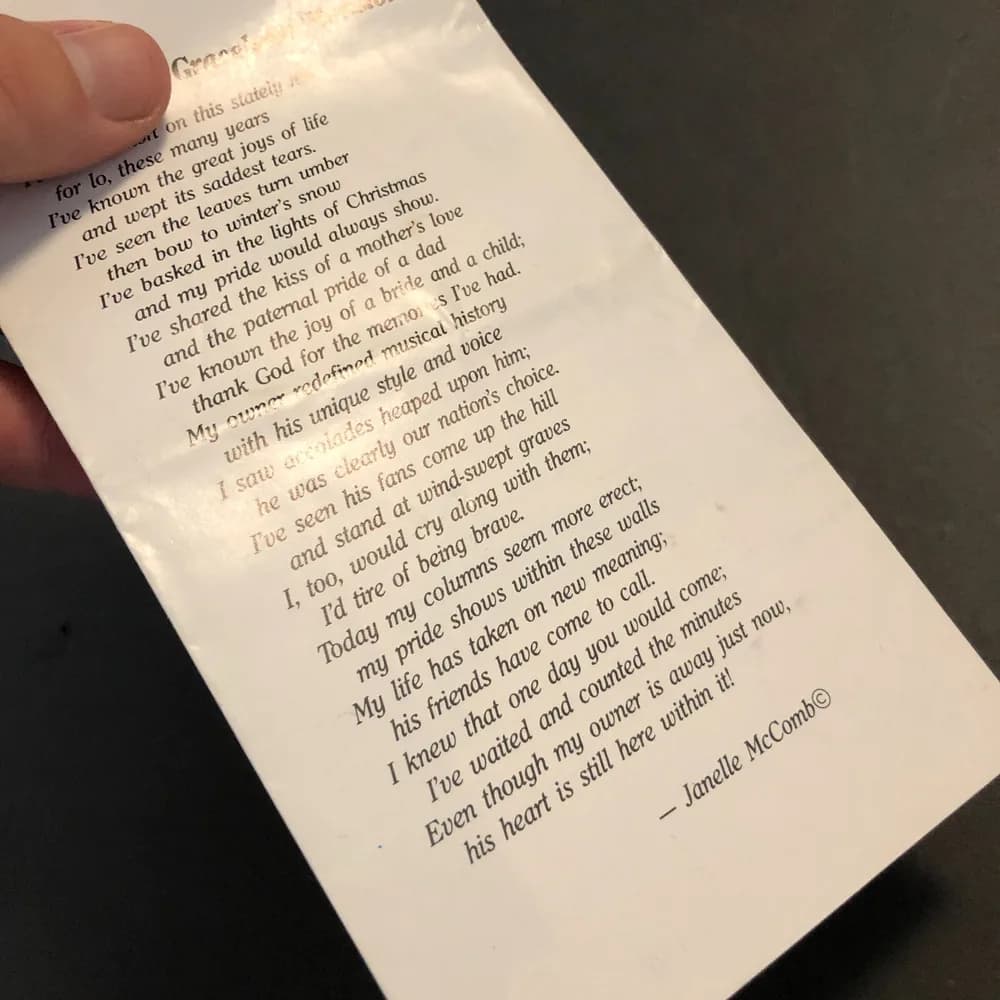 on this stately
for lo, these many years
I've known the great joys of life
and wept its saddest tears.
I've seen the leaves turn umber
then bow to winter's snow
I've basked in the lights of Christmas
and my pride would always show.
I've shared the kiss of a mother's love
and the paternal pride of a dad
I've known the joy of a bride and a child;
thank God for the memories I've had.
My owner redefined musical history
with his unique style and voice
I saw accolades heaped upon him;
he was clearly our nation's choice.
I've seen his fans come up the hill
and stand at wind-swept graves
I, too, would cry along with them;
I'd tire of being brave.
Today my columns seem more erect;
my pride shows within these walls
My life has taken on new meaning;
his friends have come to call.
I knew that one day you would come;
I've waited and counted the minutes
Even though my owner is away just now,
his heart is still here within it!
— Janelle McComb©